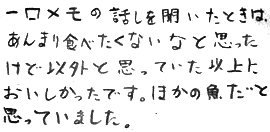 一口メモの話しを聞いたときは、
あんまり食べたくないなと思った
けど以外と思っていた以上に
おいしかったです。ほかの魚だと
思っていました。